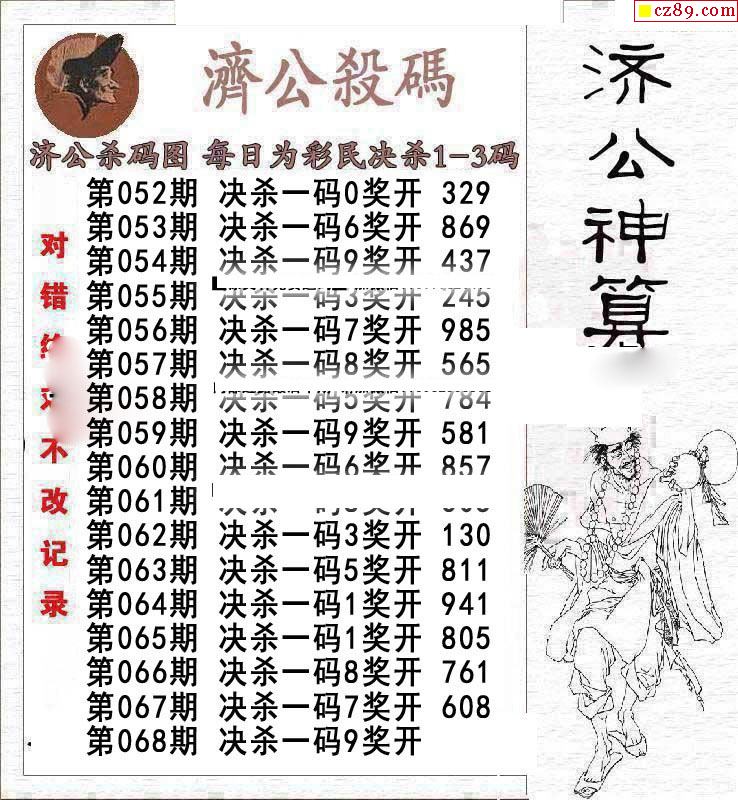 cz89.com
濟公殺碼
济公杀码图 每日为彩民决杀1-3码
第052期 决杀一码0奖开 329
第053期 决杀一码6奖开 869
第054期 决杀一码9奖开 437
第055期 决杀一码3奖开 245
第056期 决杀一码7奖开 985
第057期 决杀一码8奖开 565
第058期 决杀一码5奖开 784
第059期 决杀一码9奖开 581
第060期 决杀一码6奖开 857
第061期
第062期 决杀一码3奖开 130
第063期 决杀一码5奖开 811
第064期 决杀一码1奖开 941
第065期 决杀一码1奖开 805
第066期 决杀一码8奖开 761
第067期 决杀一码7奖开 608
第068期 决杀一码9奖开
对错绝对不改记录
济公神算